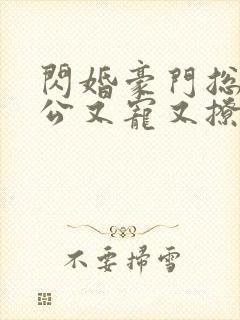 閃婚豪門総
公又寵又撩
不要掃雪